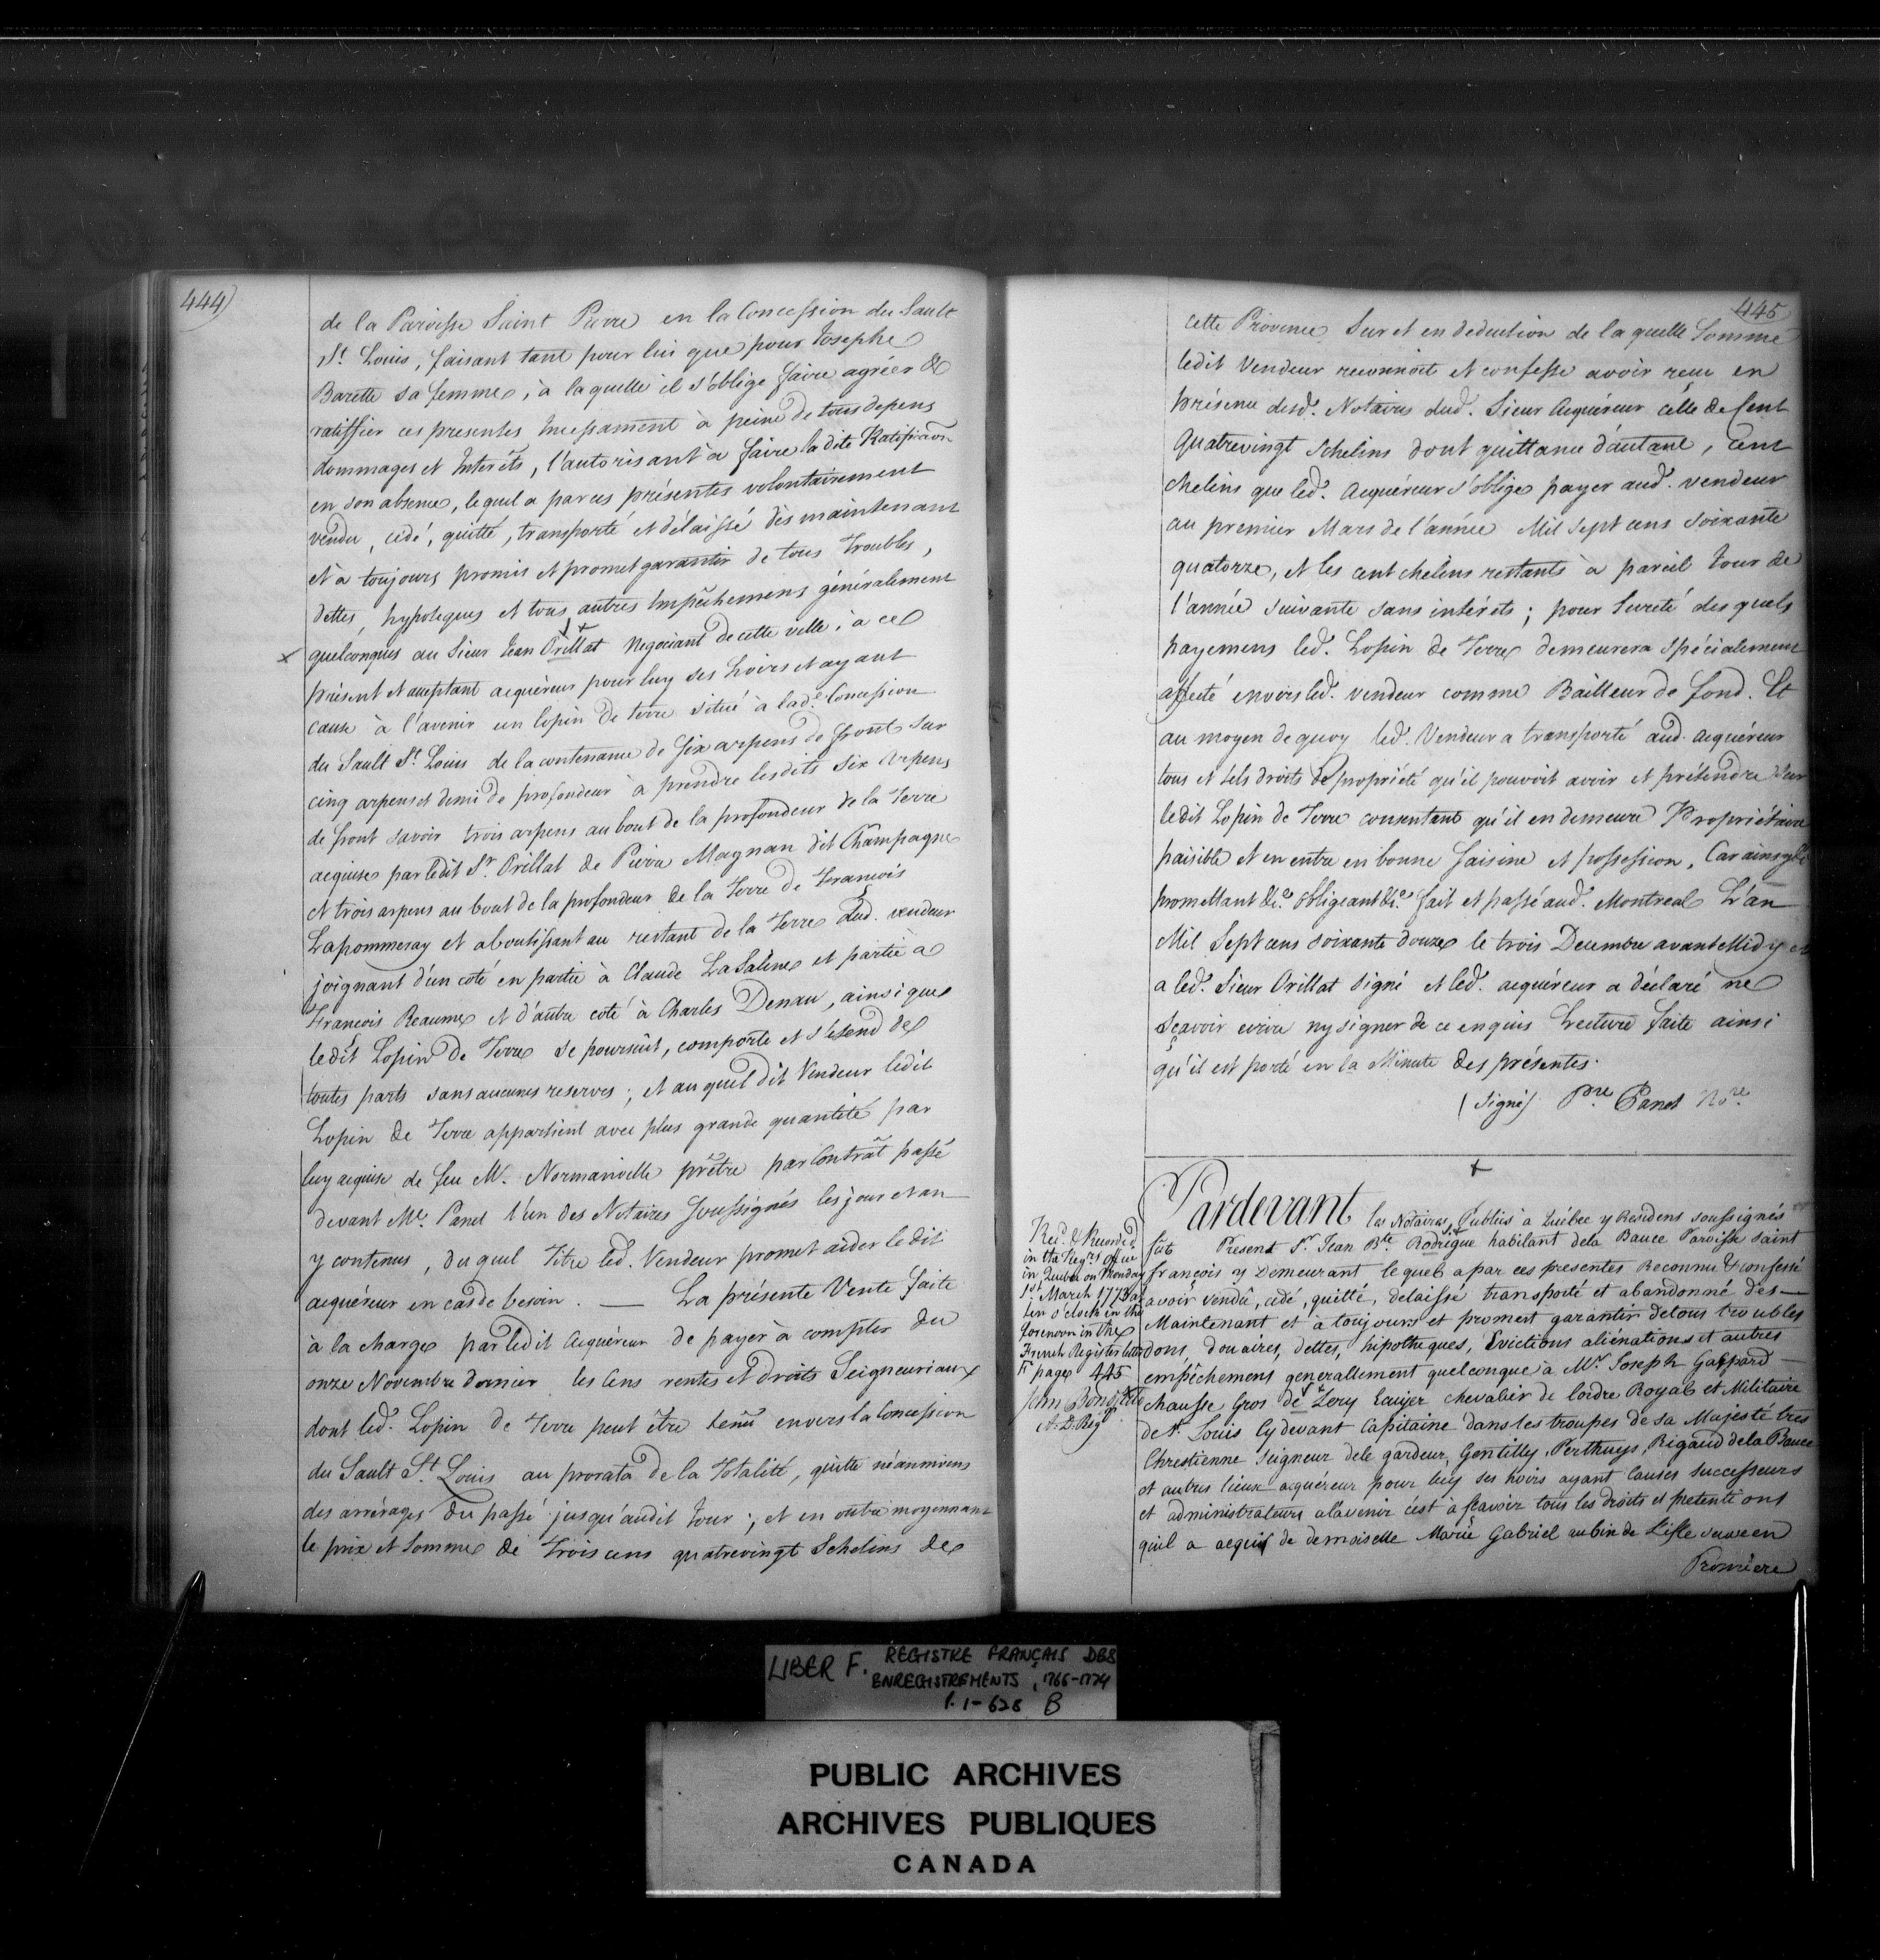 444)
de la Paroisse Saint Pierre en la Concession du Sault
St. Louis, faisant tant pour lui que pour Josephe
Barette sa femme, à laquelle il s'oblige faire agréer &
ratiffier ces presentes Incessament à peine de tous depens
dommages et Interêts, l'autorisant à faire la dite Ratification
en son absence, lequel a par ces présentes volontairement
vendu, cédé, quitté, transporté et délaissé dès maintenant
et à toujours promis et promet garantir de tous troubles,
dettes, hypoteques et tous autres Empêchemens généralement
x quelconques au Sieur Jean Orillat Negociant de cette ville, à ce
présent et acceptant acquéreur pour luy ses hoirs et ayant
cause à l'avenir un lopin de terre situé à lade. Concession
du Sault St. Louis de la contenance de six arpens de front sur
cinq arpens et demi de profondeur à prendre lesdits six Arpens
de front savoir trois arpens au bout de la profondeur de la Terre
acquise par ledit Sr. Orillat de Pierre Magnan dit Champagne
et trois arpens au bout de la profondeur de la Terre de François
Lapommeray et aboutissant au restant de la Terre dud. vendeur
joignant d'un coté en partie à Claude LaSaline et partie à
François Reaume et d'autre coté à Charles Denau, ainsi que
ledit Lopin de Terre se poursuit, comporte et s'étend de
toutes parts sans aucunes reserves; et au quel dit Vendeur ledit
Lopin de Terre appartient avec plus grande quantité par
luy acquise de feu M. Normanville prêtre par Contrat passé
devant Me. Panet l'un des Notaires Soussignés les jour et an
y contenus, duquel Titre led. Vendeur promet aider ledit
acquéreur en cas de besoin. — La présente Vente faite
à la charge par ledit Acquéreur de payer à compter du
onze Novembre dernier les Cens rentes et droits Seigneuriaux
dont led. Lopin de Terre peut être tenu envers la Concession
du Sault St. Louis au prorata de la Totalité, quitte néanmoins
des arrérages du passé jusqu'audit Jour; et en outre moyennant
le prix et Somme de Trois cens quatrevingt Schelins de
445
cette Province Sur et en deduction de la quelle Somme
ledit Vendeur reconnoit et confesse avoir reçu en
présence desd. Notaires dud. Sieur Acquéreur celle de Cent
Quatrevingt Schelins dont quittance d'autant, cent
chelins que led. Acquéreur s'oblige payer aud. vendeur
au premier Mars de l'année Mil sept cens soixante
quatorze, et les cent chelins restants à pareil Jour de
l'année suivante sans intérêts; pour Sureté des quels
payemens led. Lopin de Terre demeurera spécialement
affecté envers led. vendeur comme Bailleur de fond. Et
au moyen de quoy led. Vendeur a transporté aud. acquéreur
tous et tels droits de propriété qu'il pouvoit avoir et prétendre sur
ledit Lopin de Terre consentant qu'il en demeure Propriétaire
paisible et en entre en bonne Saisine et possession, Car ainsy &c.
promettant &c. obligeant &c. fait et passé aud. Montreal L'an
Mil Sept cens soixante douze le trois Decembre avant Midy et
a led. Sieur Orillat signé et led. acquéreur a déclaré ne
sçavoir ecrire ny signer de ce enquis Lecture faite ainsi
qu'il est porté en la Minute des présentes.
(Signé) Pre Panet Nore
x
Recd. & Recorded
in the Regrs. office
in Quebec on Monday
1st March 1773 at
ten o'clock in the
forenoon in the
French Register letter
F page 445
D. Reg
Pardevant les Notaires Publics à Québec y Residens soussignés
fut Present Sr. Jean Bte. Rodrigue habitant dela Bauce Paroisse Saint
françois y Demeurant lequel a par ces presentes Reconnu & confessé
avoir vendû, cédé, quitté, delaissé transporté et abandonné des—
Maintenant et à toujours et promet garantir detous troubles
dons, douaires, dettes, hipotheques, Evictions aliénations et autres
empêchemens generallement quelconque à Mr. Joseph Gaspard —
chausse Gros de Lery Ecuyer chevalier de lordre Royal et Militaire
de St. Louis Cydevant Capitaine dans les troupes de sa Majesté tres
Chrestienne Seigneur dele gardeur, Gentilly, Perthuys, Rigaud dela Bauce
et autres lieux acquéreur pour luy ses hoirs ayant causes successeurs
et administrateurs alavenir cest à sçavoir tous les droits et pretentions
quil a acquis de demoiselle Marie Gabriel aubin de Lisle veuve en
Premiere
LIBER F. REGISTRE FRANÇAIS DES
ENREGISTREMENTS, 1766-1774
P. 1-628 B
PUBLIC ARCHIVES
ARCHIVES PUBLIQUES
CANADA